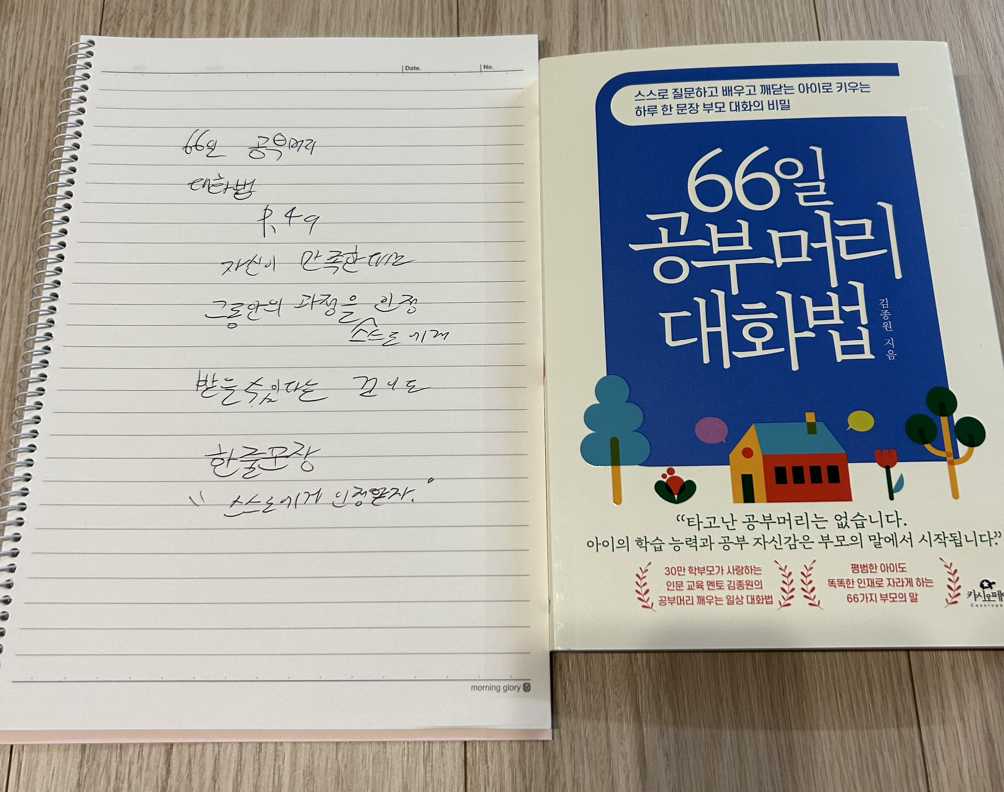 Date.
No.
66일 공부머리
대화법
P. 49
자신이 만족한대로
그동안의 과정을 인정
스스로에게
받을수있다는
한줄문장
"스스로에게 인정받자."
morning glory
스스로 질문하고 배우고 깨닫는 아이로 키우는
하루 한 문장 부모 대화의 비밀
66일
공부머리
대화법
김종원 지음
“타고난 공부머리는 없습니다.
아이의 학습 능력과 공부 자신감은 부모의 말에서 시작됩니다.”
30만 학부모가 사랑하는
인문 교육 멘토 김종원의
공부머리 깨우는 일상 대화법
평범한 아이도
똑똑한 인재로 자라게 하는
66가지 부모의 말